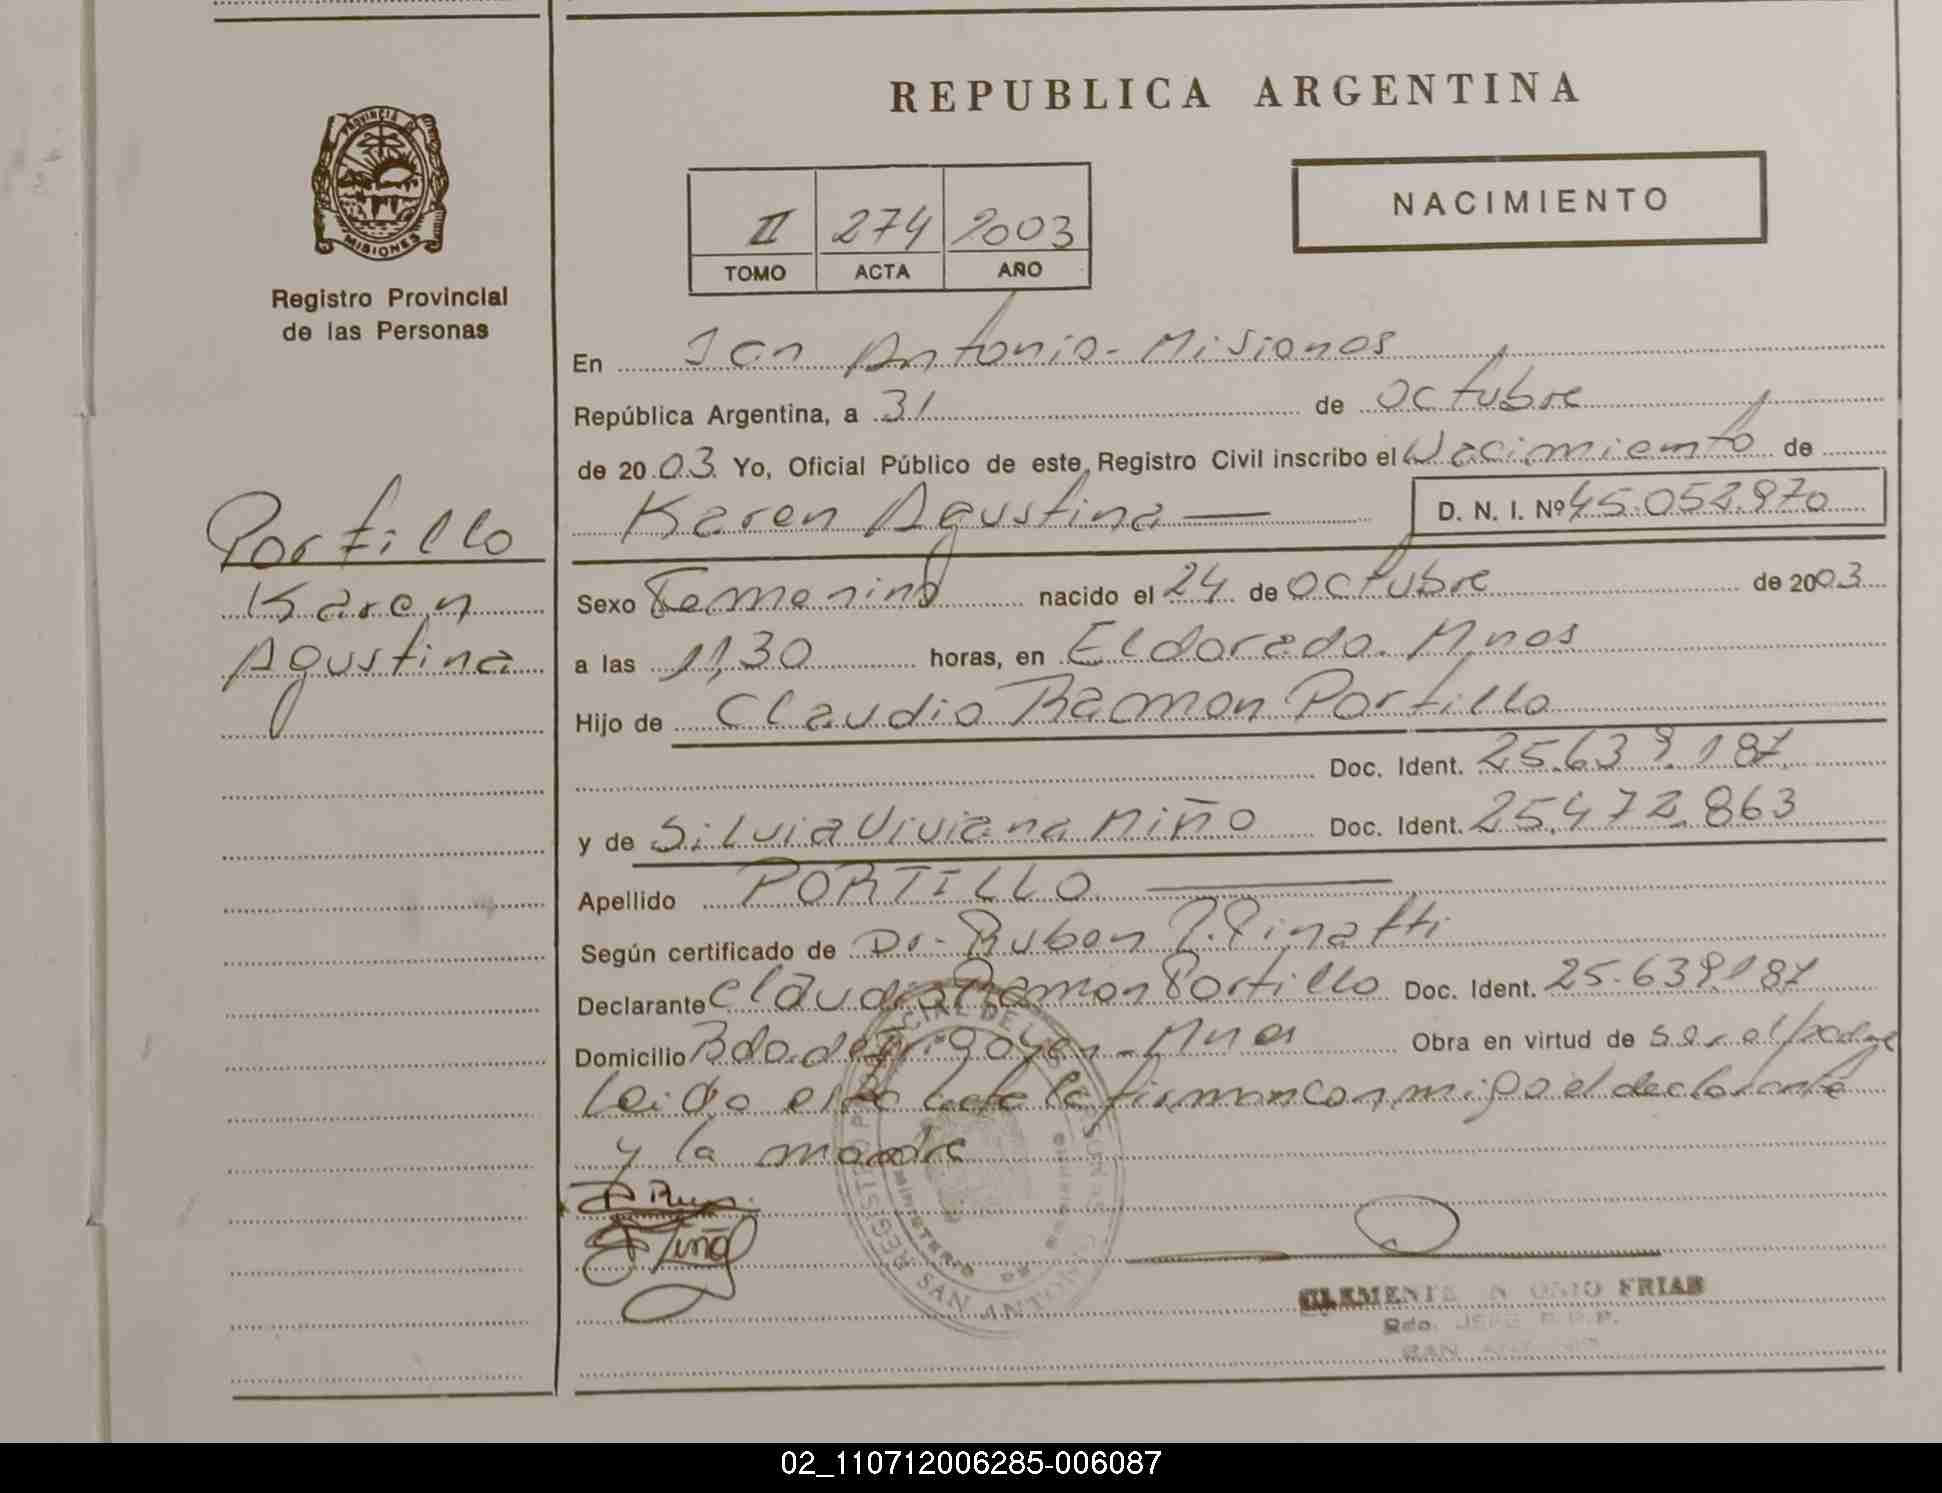 REPUBLICA ARGENTINA
PROVINCIA DE
MISIONES
Registro Provincial
de las Personas
II 274 2003
TOMO ACTA AÑO
NACIMIENTO
Portillo
Karen
Agustina
En San Antonio - Misiones
República Argentina, a 31 de octubre
de 2003 Yo, Oficial Público de este Registro Civil inscribo el Nacimiento de
Karen Agustina D. N. I. Nº 45.052.970
Sexo Femenino nacido el 24 de octubre de 2003
a las 11,30 horas, en Eldorado. Mnes
Hijo de Claudio Ramon Portillo
Doc. Ident. 25.639.187
y de Silvia Viviana Miño Doc. Ident. 25.472.863
Apellido PORTILLO
Según certificado de Dr. Ruben Pinatti
Declarante Claudio Ramon Portillo Doc. Ident. 25.639.187
Domicilio Bdo. de Irigoyen - Mnes Obra en virtud de ser el padre
Leida esta acta la firman conmigo el declarante
y la madre
Miño
REGISTRO PROVINCIAL DE LAS PERSONAS
MINISTERIO DE GOBIERNO
SAN ANTONIO
CLEMENTE ANTONIO FRIAS
JEFE R.P.P.
SAN ANTONIO
02_110712006285-006087